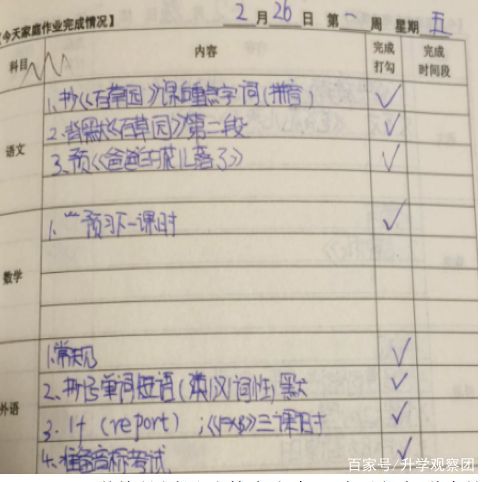 今天家庭作业完成情况】 2 月 26 日 第 一 周 星期 五
科目 内容 完成打勾 完成时间段
语文
1、抄《百草园》课重点字词(拼音)
2、背默《百草园》第二段
3、预《爸爸的花儿落了》
数学
1、预习下一课时
外语
1、常规
2、抄写单词短语(英汉词性)默
3、(report);三课时
4、准备音标考试
百家号/升学观察团